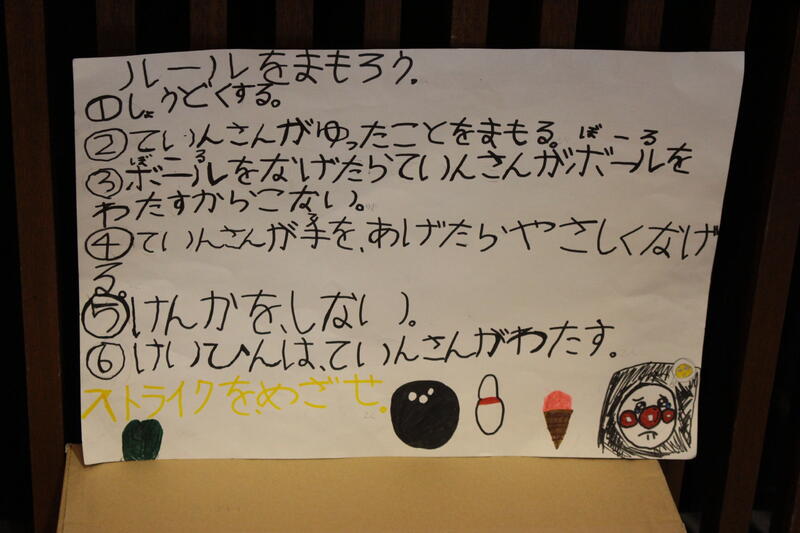 ルールをまもろう.
①しょうどくする。
②ていんさんがゆったことをまもる。ぼーる
ぼーる
③ボールをなげたらていんさんがボールを
わたすからこない。
て
④ていんさんが手を、あげたらやさしくなげ
る。
⑤けんかを、しない。
⑥けいひんは、ていんさんがわたす。
ストライクを、めざせ。